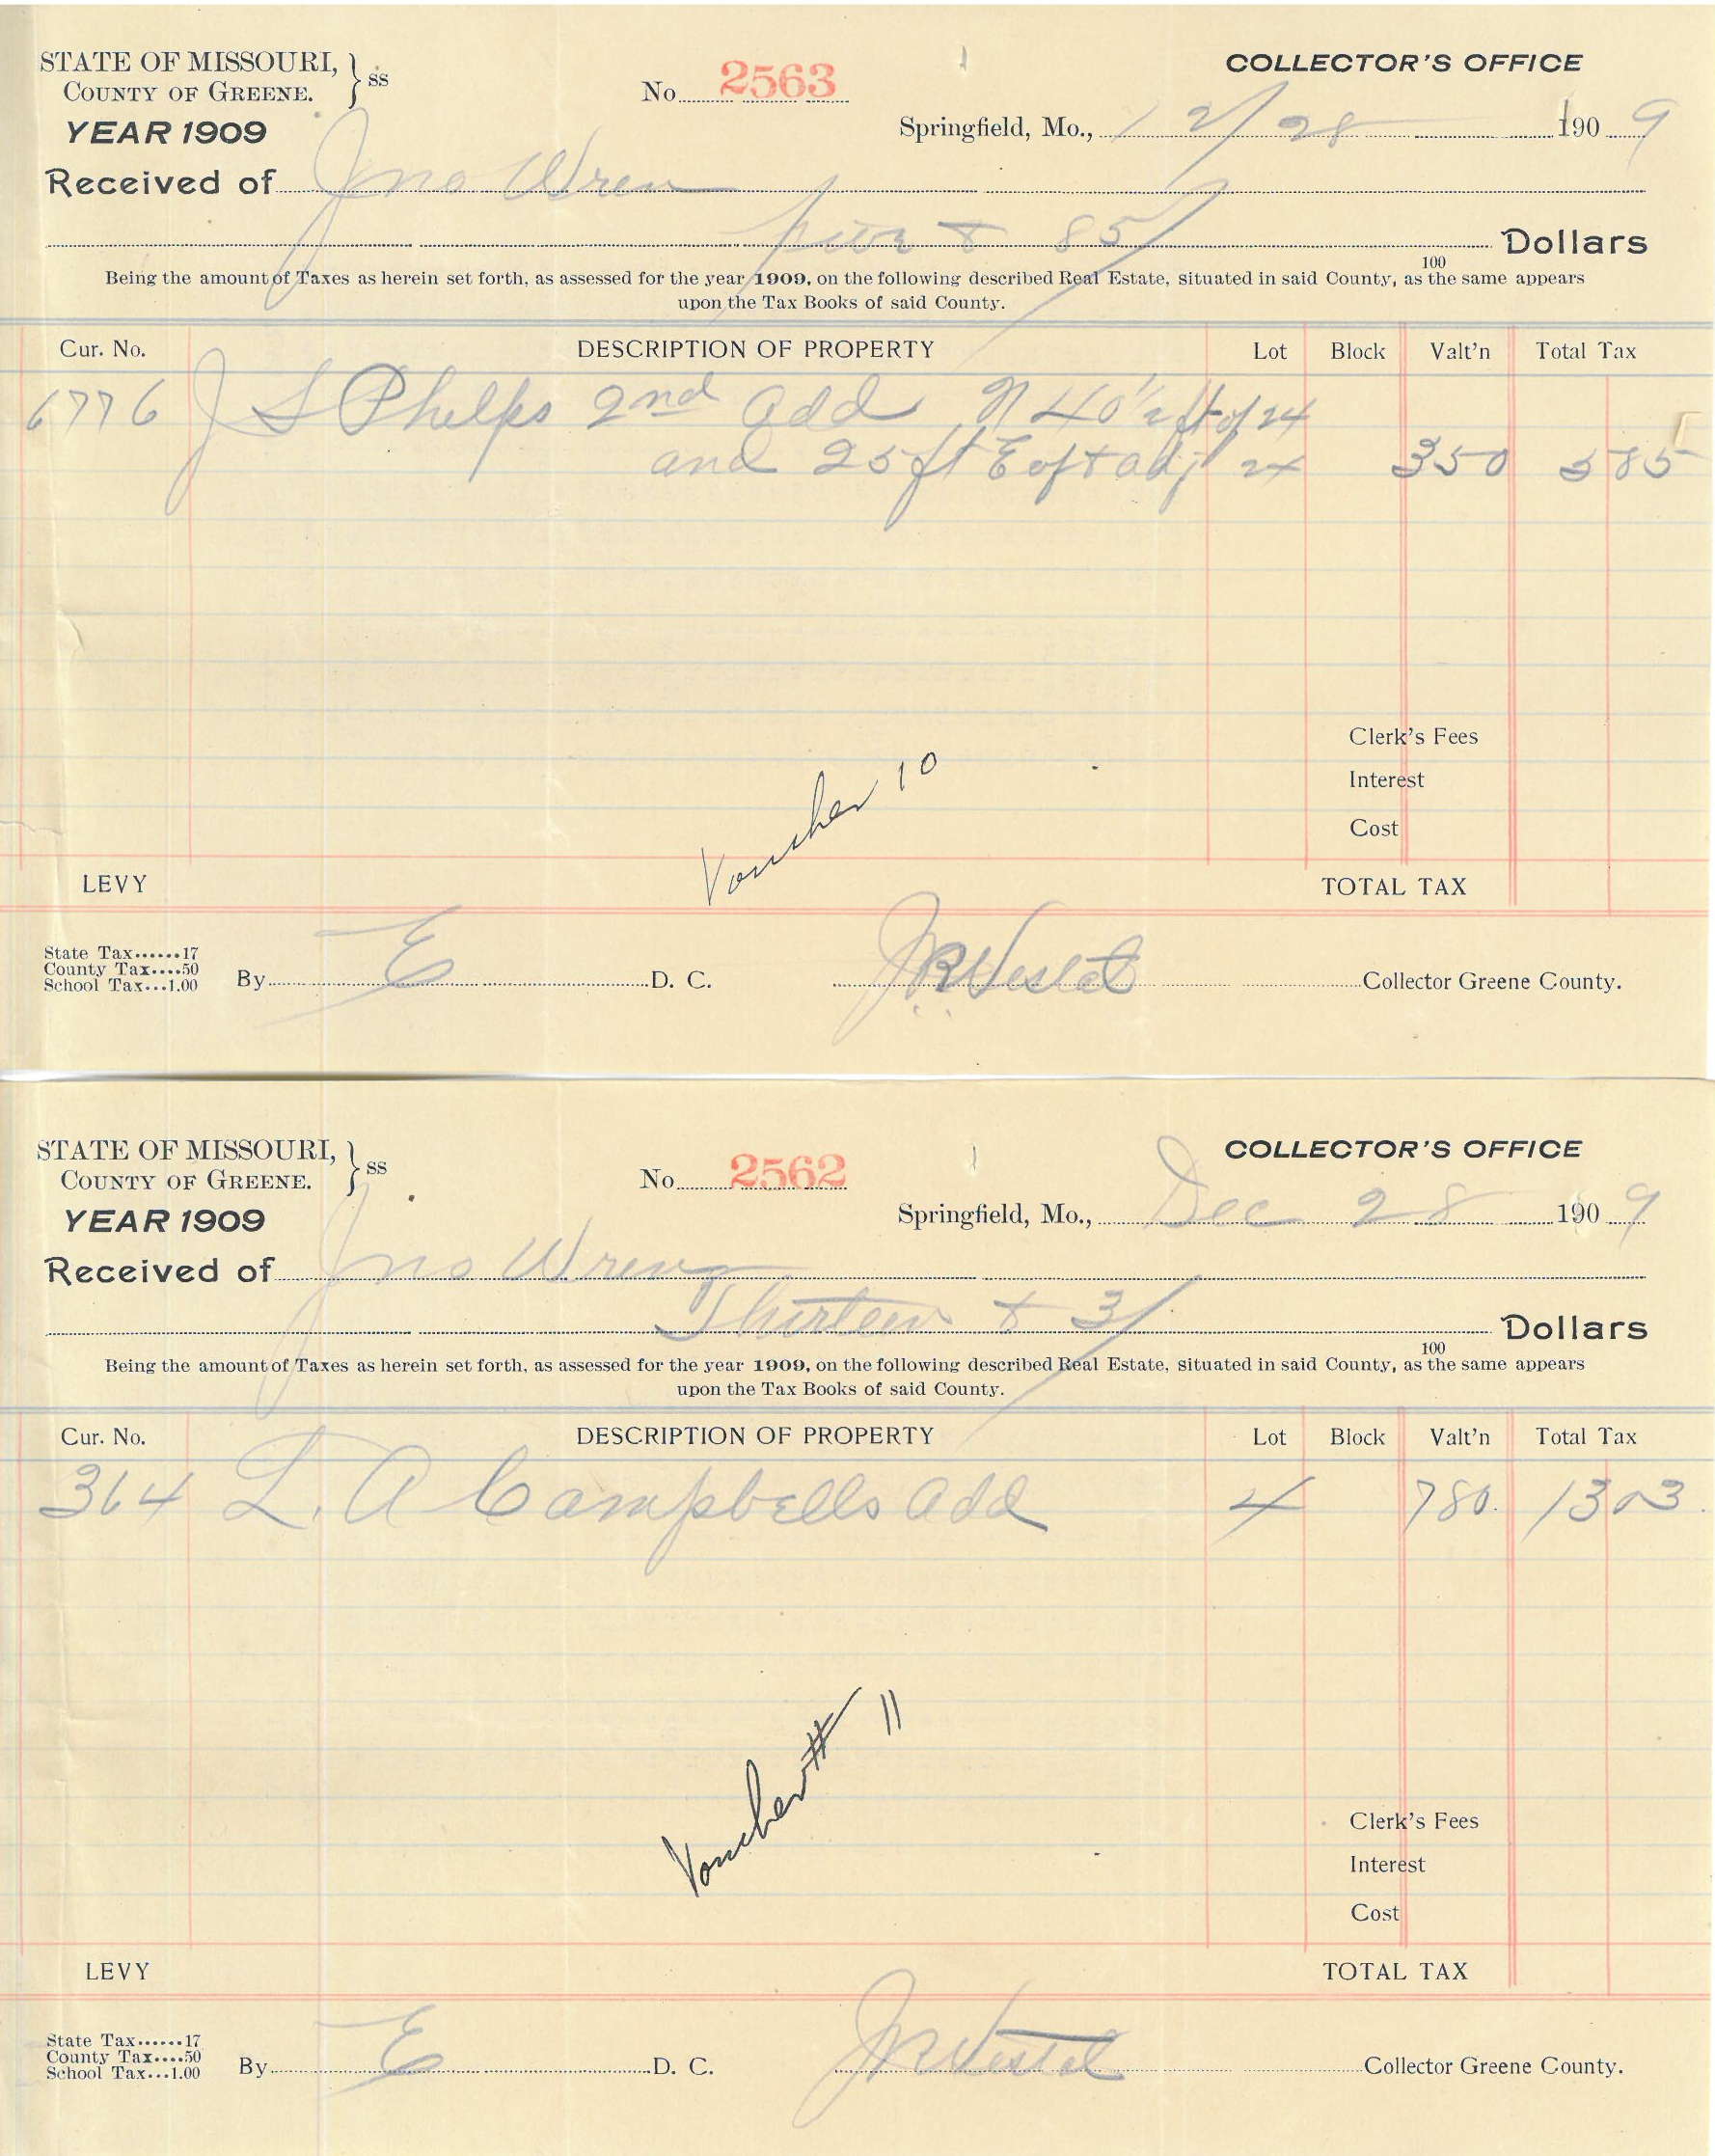 STATE OF MISSOURI, } ss
COUNTY OF GREENE.
No. 2563
COLLECTOR'S OFFICE
YEAR 1909
Springfield, Mo., 12/28 1909
Received of Jno Wren
five & 85/100 Dollars
Being the amount of Taxes as herein set forth, as assessed for the year 1909, on the following described Real Estate, situated in said County, as the same appears
upon the Tax Books of said County.
Cur. No. DESCRIPTION OF PROPERTY Lot Block Valt'n Total Tax
6776 J S Phelps 2nd Add N 40 1/2 ft of 24
and 25 ft E of & adj 24 350 5 85
Clerk's Fees
Interest
Cost
Voucher 10
LEVY TOTAL TAX
State Tax......17
County Tax....50
School Tax...1.00
By E D. C. Collector Greene County.
STATE OF MISSOURI, } ss
COUNTY OF GREENE.
No. 2562
COLLECTOR'S OFFICE
YEAR 1909
Springfield, Mo., Dec 28 1909
Received of Jno Wren
Thirteen & 3/100 Dollars
Being the amount of Taxes as herein set forth, as assessed for the year 1909, on the following described Real Estate, situated in said County, as the same appears
upon the Tax Books of said County.
Cur. No. DESCRIPTION OF PROPERTY Lot Block Valt'n Total Tax
364 L. A Campbells Add 4 780. 13 03.
Voucher # 11
Clerk's Fees
Interest
Cost
LEVY TOTAL TAX
State Tax......17
County Tax....50
School Tax...1.00
By E D. C. Collector Greene County.